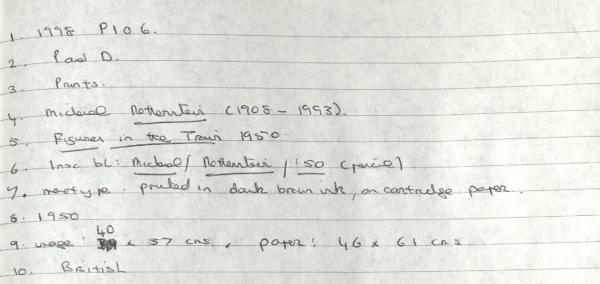 1. 1998 P106.
2. Paul D.
3. Prints.
4. Michael Rothenstein (1908 - 1993).
5. Figures in the Train 1950.
6. Insc bl: Michael/ Rothenstein / '50 (pencil)
7. monotype. printed in dark brown ink, on cartridge paper.
8. 1950
9. image: 40 x 57 cms, paper: 46 x 61 cms
10. British